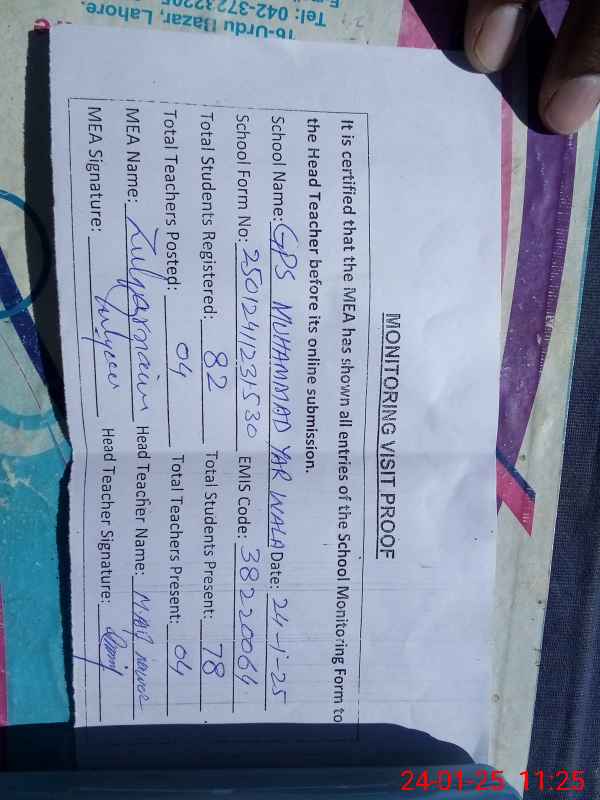 MONITORING VISIT PROOF
It is certified that the MEA has shown all entries of the School Monitoring Form to
the Head Teacher before its online submission.
School Name: GPS MUHAMMAD YAR WALA Date: 24-1-25
School Form No: EMIS Code: 38220064
Total Students Registered: 82 Total Students Present: 78
Total Teachers Posted: 04 Total Teachers Present: 04
MEA Name: Head Teacher Name:
MEA Signature: Head Teacher Signature:
16-Urdu Bazar, Lahore.
Tel:
24-01-25 11:25